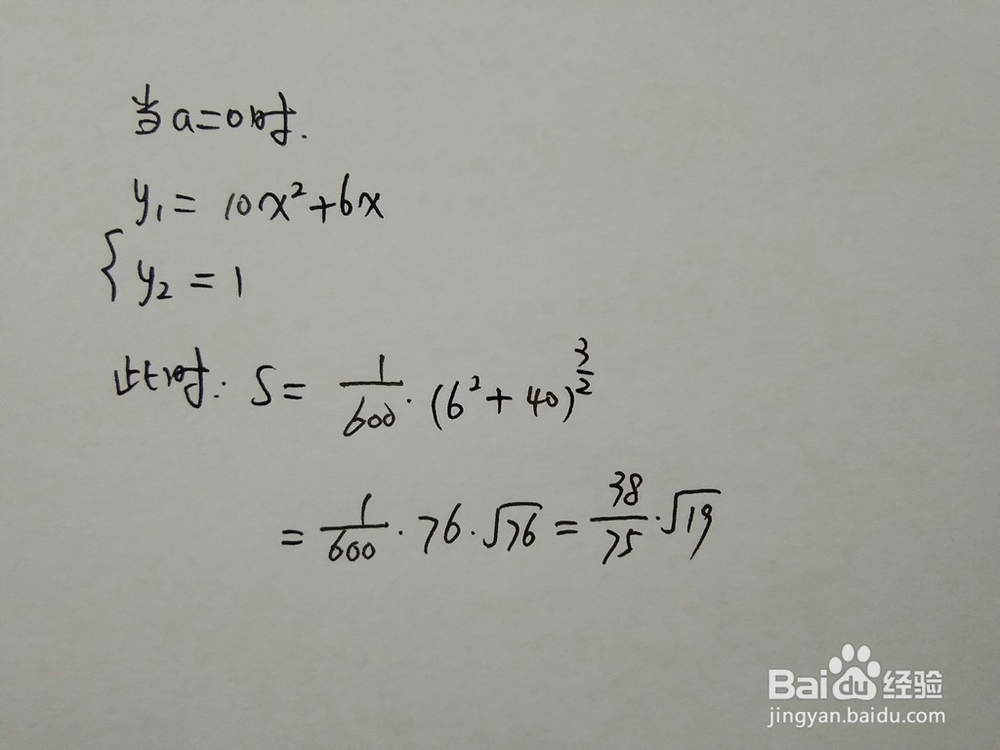 当a=0时.
y₁ = 10x²+6x
{ y₂ = 1
此时: S = 1/600 · (6²+40)^(3/2)
= 1/600 · 76 · √76 = 38/75 · √19
Baidu 经验
jingyan.baidu.com